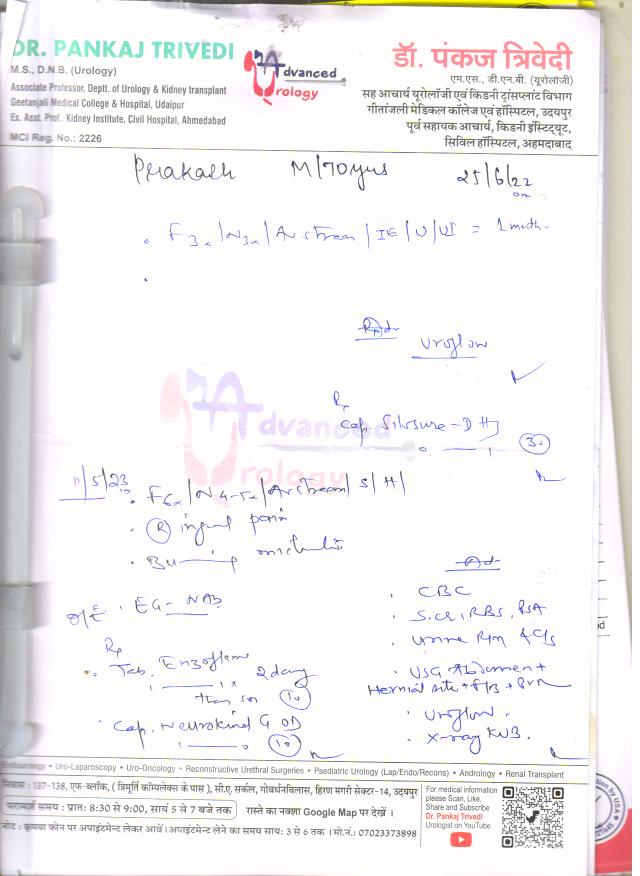 DR. PANKAJ TRIVEDI
M.S., D.N.B. (Urology)
Associate Professor, Deptt. of Urology & Kidney transplant
Geetanjali Medical College & Hospital, Udaipur
Ex. Asst. Prof. Kidney Institute, Civil Hospital, Ahmedabad
MCI Reg. No.: 2226
Advanced
Urology
डॉ. पंकज त्रिवेदी
एम.एस., डी.एन.बी. (यूरोलॉजी)
सह आचार्य यूरोलॉजी एवं किडनी ट्रांसप्लांट विभाग
गीतांजली मेडिकल कॉलेज एवं हॉस्पिटल, उदयपुर
पूर्व सहायक आचार्य, किडनी इंस्टिट्यूट,
सिविल हॉस्पिटल, अहमदाबाद
Prakash M/70yrs 25/6/22
F3x/N3x/Av stream/IE/U/UI = 1 month.
Adv
Uroflow
Rx
Cap. Silosure-D
0 1 (30)
Advanced
Urology
11/5/23
F6x/N4-5x/Av stream/S/H/
(R) ingual pain
Burning micturition
O/E. EG- NAD
Rx
Tab. Enzoflam
1 1 x 2 days
then sos (10)
Cap. Neurokind G OD
1 0 (10)
Adv
CBC
S.cr, RBS, PSA
Urine R/m & C/s
USG Abdomen +
Hernial site +
Uroflow.
X-ray KUB.
Endourology • Uro-Laparoscopy • Uro-Oncology • Reconstructive Urethral Surgeries • Paediatric Urology (Lap/Endo/Recons) • Andrology • Renal Transplant
निवास : 137-138, एफ-ब्लॉक, ( त्रिमूर्ति कॉम्पलेक्स के पास ), सी.ए. सर्कल, गोवर्धनविलास, हिरण मगरी सेक्टर-14, उदयपुर
परामर्श समय : प्रात: 8:30 से 9:00, सायं 5 से 7 बजे तक रास्ते का नक्शा Google Map पर देखें ।
नोट : कृपया फोन पर अपाइंटमेन्ट लेकर आवें । अपाइंटमेन्ट लेने का समय सायं: 3 से 6 तक । मो.नं.: 07023373898
For medical information
please Scan, Like,
Share and Subscribe
Dr. Pankaj Trivedi
Urologist on YouTube